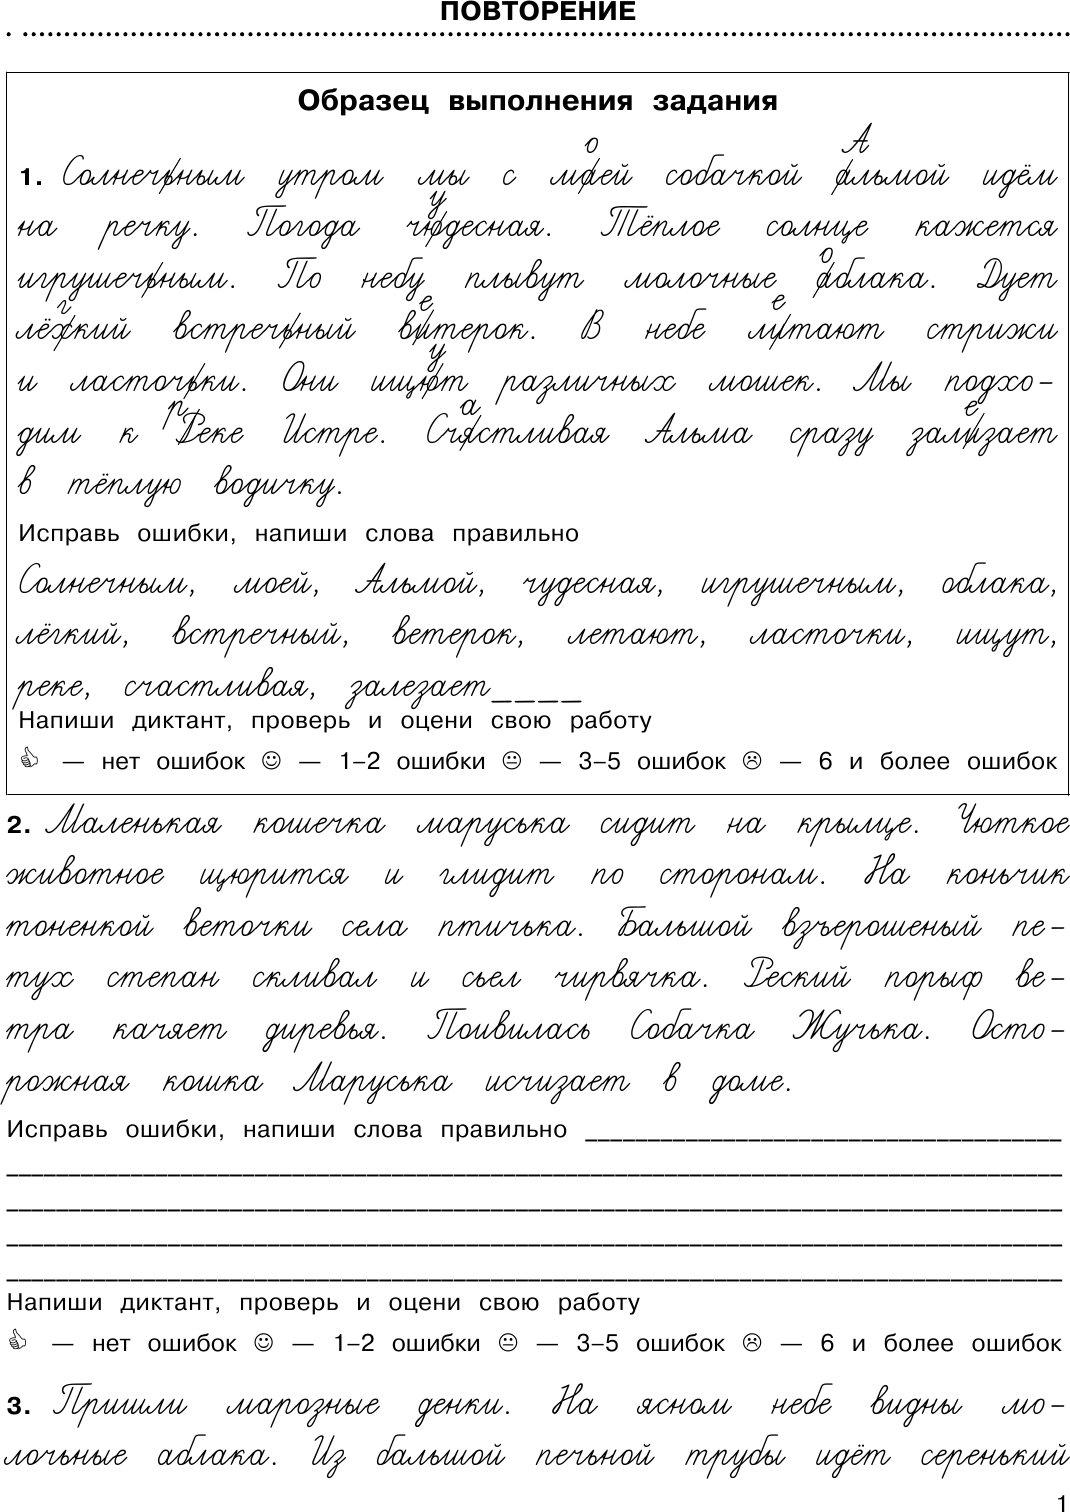 ПОВТОРЕНИЕ
Образец выполнения задания
о А
1. Солнечьным утром мы с мпей собачкой альмой идём
у
на речку. Погода чюдесная. Тёплое солнце кажется
о
игрушечьным. По небу плывут молочные аблака. Дует
г е е
лёхкий встречьный витерок. В небе литают стрижи
у
и ласточьки. Они ищют различных мошек. Мы подхо-
р а е
дим к Реке Истре. Счястливая Альма сразу зализает
в тёплую водичку.
Исправь ошибки, напиши слова правильно
Солнечным, моей, Альмой, чудесная, игрушечным, облака,
лёгкий, встречный, ветерок, летают, ласточки, ищут,
реке, счастливая, залезает____
Напиши диктант, проверь и оцени свою работу
👍 — нет ошибок ☺ — 1–2 ошибки 😐 — 3–5 ошибок ☹ — 6 и более ошибок
2. Маленькая кошечка маруська сидит на крылце. Чюткое
животное щюрится и глидит по сторонам. На коньчик
тоненкой веточки села птичька. Балышой взъерошеный пе-
тух степан скливал и сьел чирвячка. Реский порыф ве-
тра качяет диревья. Поивилась Собачка Жучька. Осто-
рожная кошка Маруська исчизает в доме.
Исправь ошибки, напиши слова правильно
Напиши диктант, проверь и оцени свою работу
👍 — нет ошибок ☺ — 1–2 ошибки 😐 — 3–5 ошибок ☹ — 6 и более ошибок
3. Пришли марозные денки. На ясном небе видны мо-
лочьные аблака. Из балышой печьной трубы идёт серенький
1